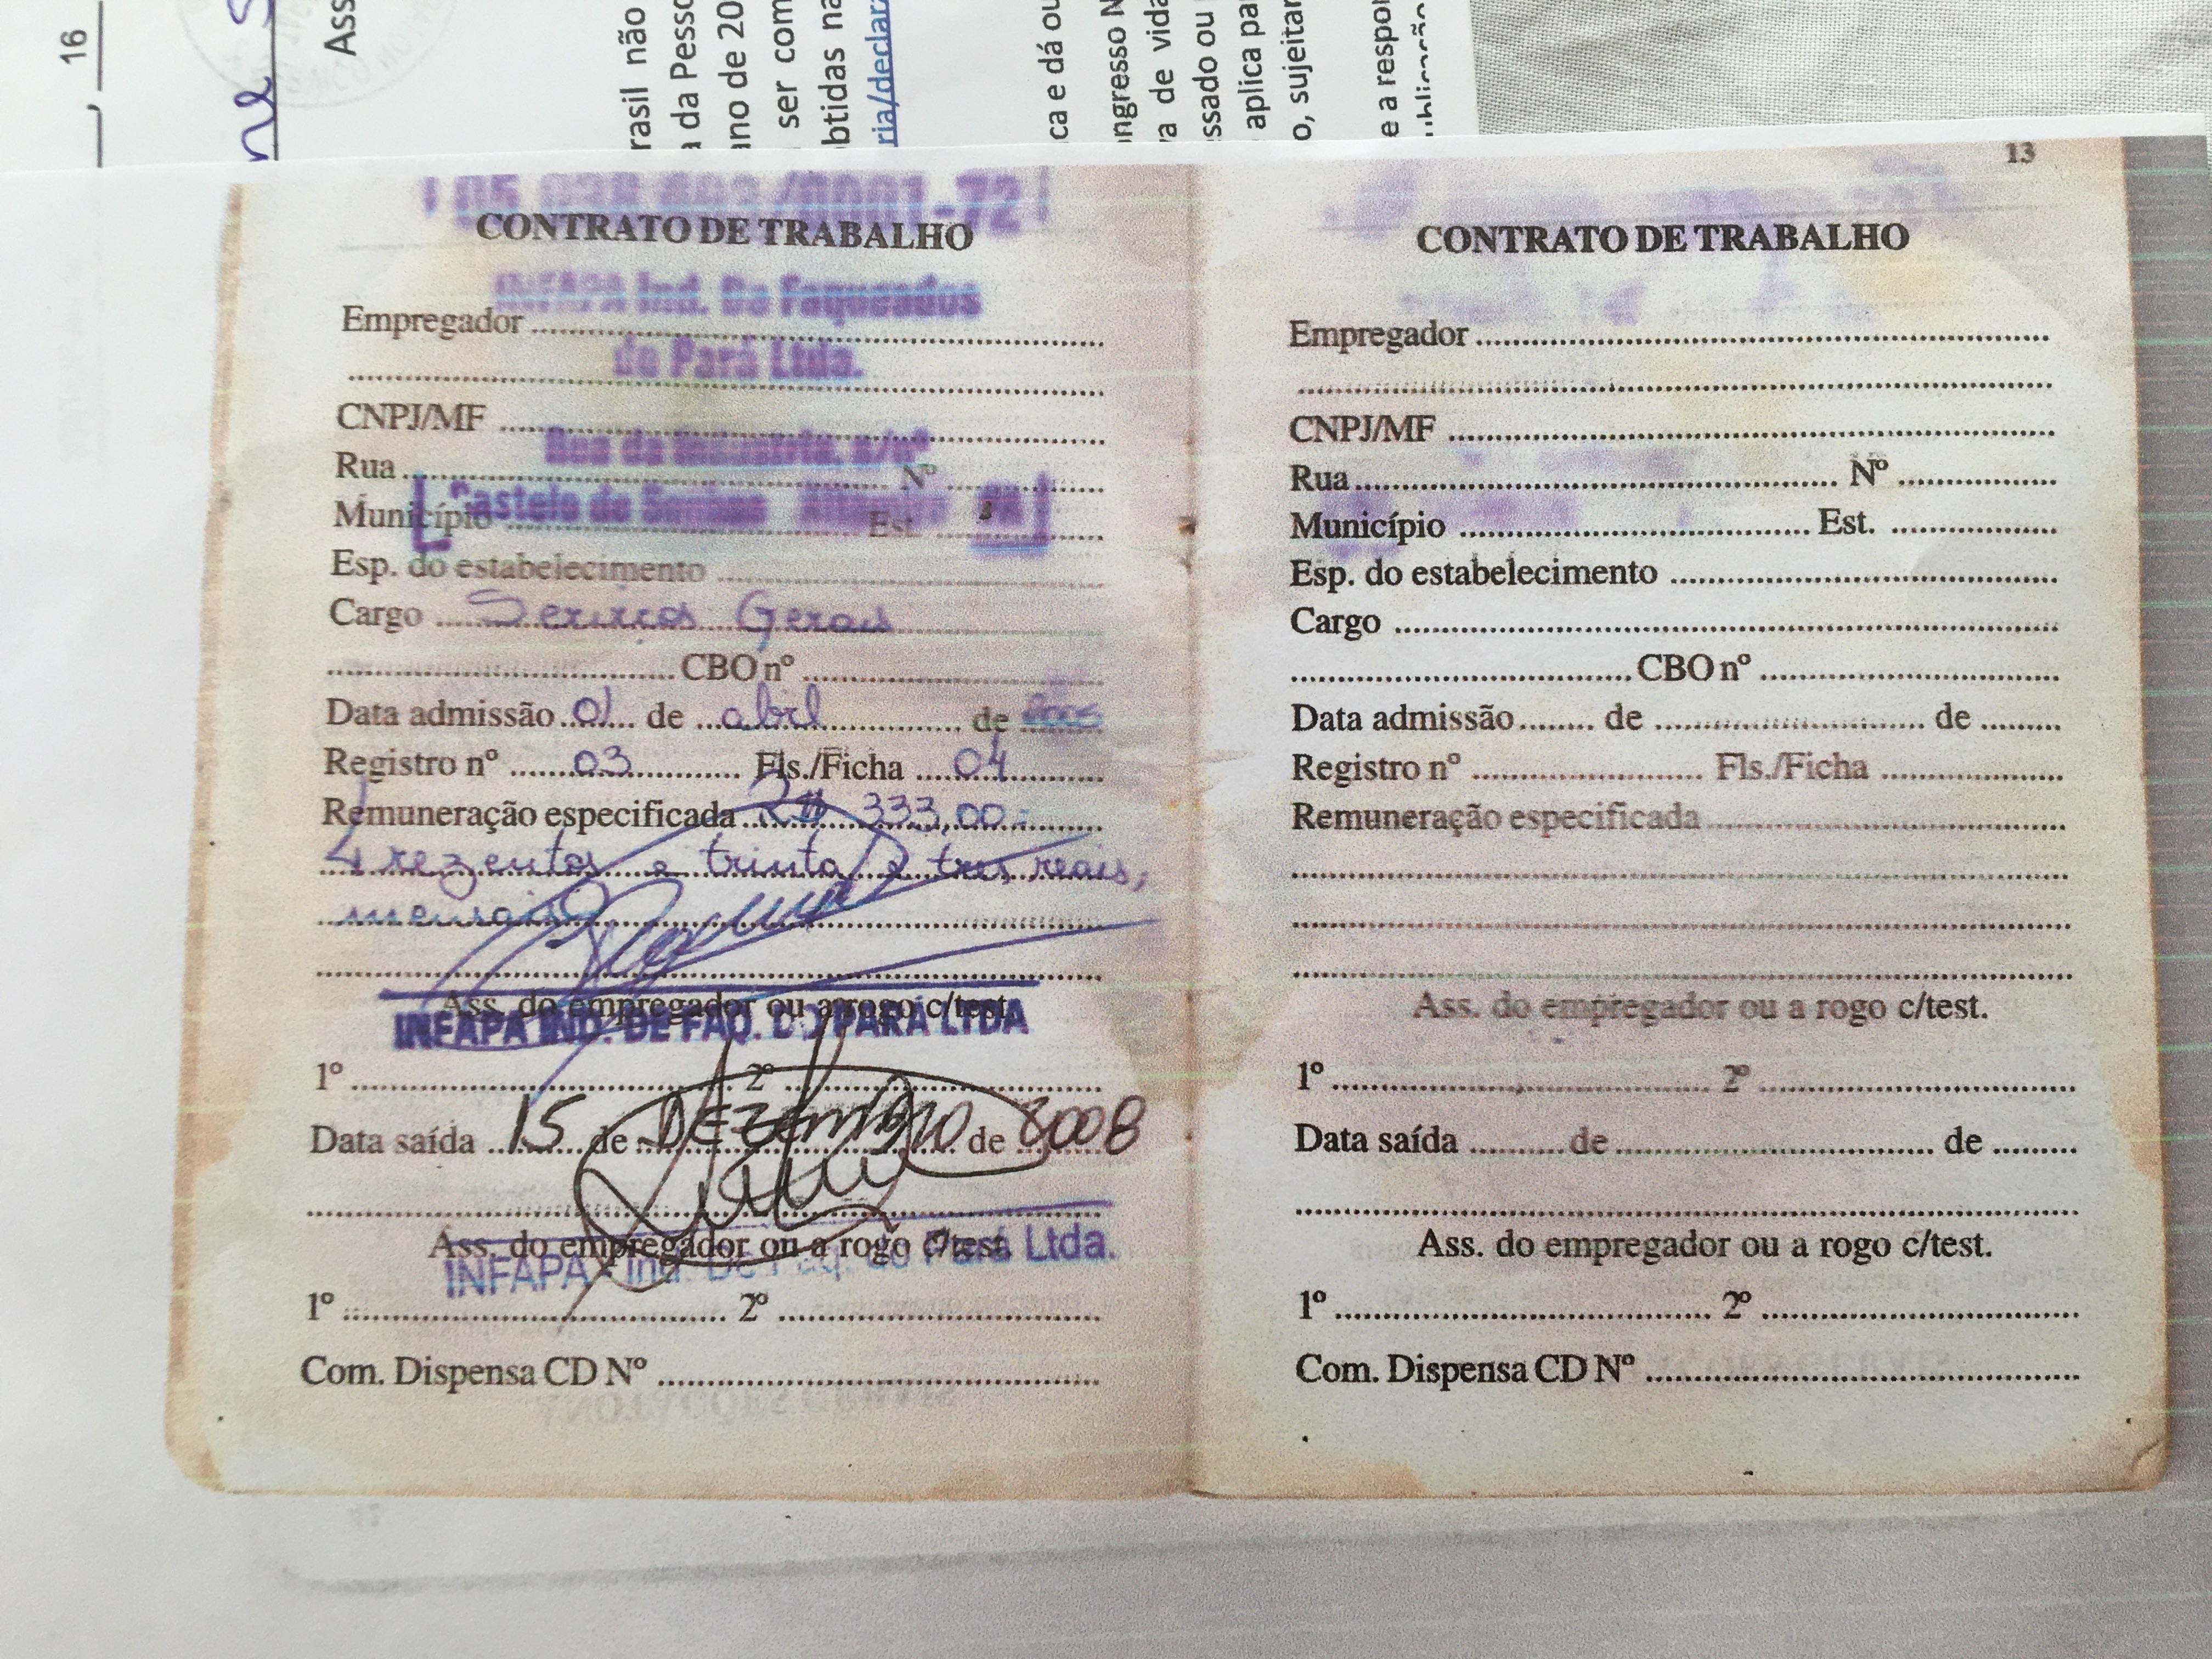 16
Ass
rasil não
da Pesso
ano de 20
ser com
btidas na
ria/declara
ca e dá ou
ongresso N
va de vida
ssado ou
aplica pa
o, sujeitar
e a respor
/0001-72
CONTRATO DE TRABALHO
INFAPA Ind. De Faqueados
do Pará Ltda.
Empregador
CNPJ/MF
Rua da Industria, s/nº
Rua Nº
Castelo de Sonhos Altamira PA
Município Est.
Esp. do estabelecimento
Cargo Serviços Gerais
CBO nº
Data admissão 01 de abril de
Registro nº 03 Fls./Ficha 04
Remuneração especificada R$ 333,00
trezentos e trinta e tres reais,
mensais
Ass. do empregador ou a rogo c/test.
INFAPA IND. DE FAQ. DO PARÁ LTDA
1º 2º
Data saída 15 de DEZEMBRO de 2008
Ass. do empregador ou a rogo c/test.
INFAPA - Ind. De Faq. do Pará Ltda.
1º 2º
Com. Dispensa CD Nº
13
CONTRATO DE TRABALHO
Empregador
CNPJ/MF
Rua Nº
Município Est.
Esp. do estabelecimento
Cargo
CBO nº
Data admissão de de
Registro nº Fls./Ficha
Remuneração especificada
Ass. do empregador ou a rogo c/test.
1º 2º
Data saída de de
Ass. do empregador ou a rogo c/test.
1º 2º
Com. Dispensa CD Nº